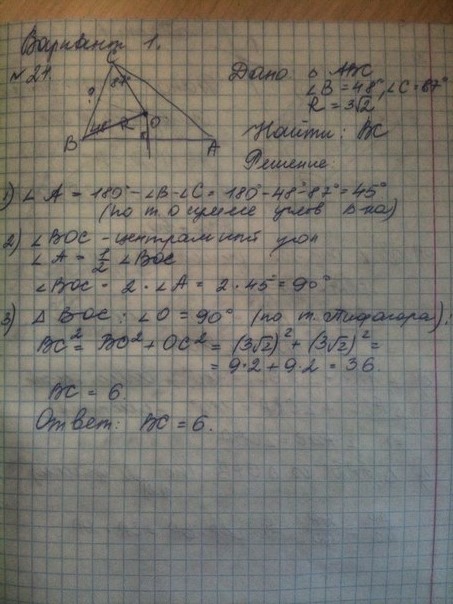 Вариант 1.
№ 24.
C
87°
?
48°
R
O
B
A
Дано △ ABC
∠B = 48°, ∠C = 87°
R = 3√2
Найти: BC
Решение
1) ∠A = 180° - ∠B - ∠C = 180° - 48° - 87° = 45°
(по т. о сумме углов Δ-ка)
2) ∠BOC - центральный угол
∠A = 1/2 ∠BOC
∠BOC = 2 · ∠A = 2 · 45° = 90°
3) Δ BOC: ∠O = 90° (по т. Пифагора):
BC² = BO² + OC² = (3√2)² + (3√2)² =
= 9·2 + 9·2 = 36
BC = 6.
Ответ: BC = 6.